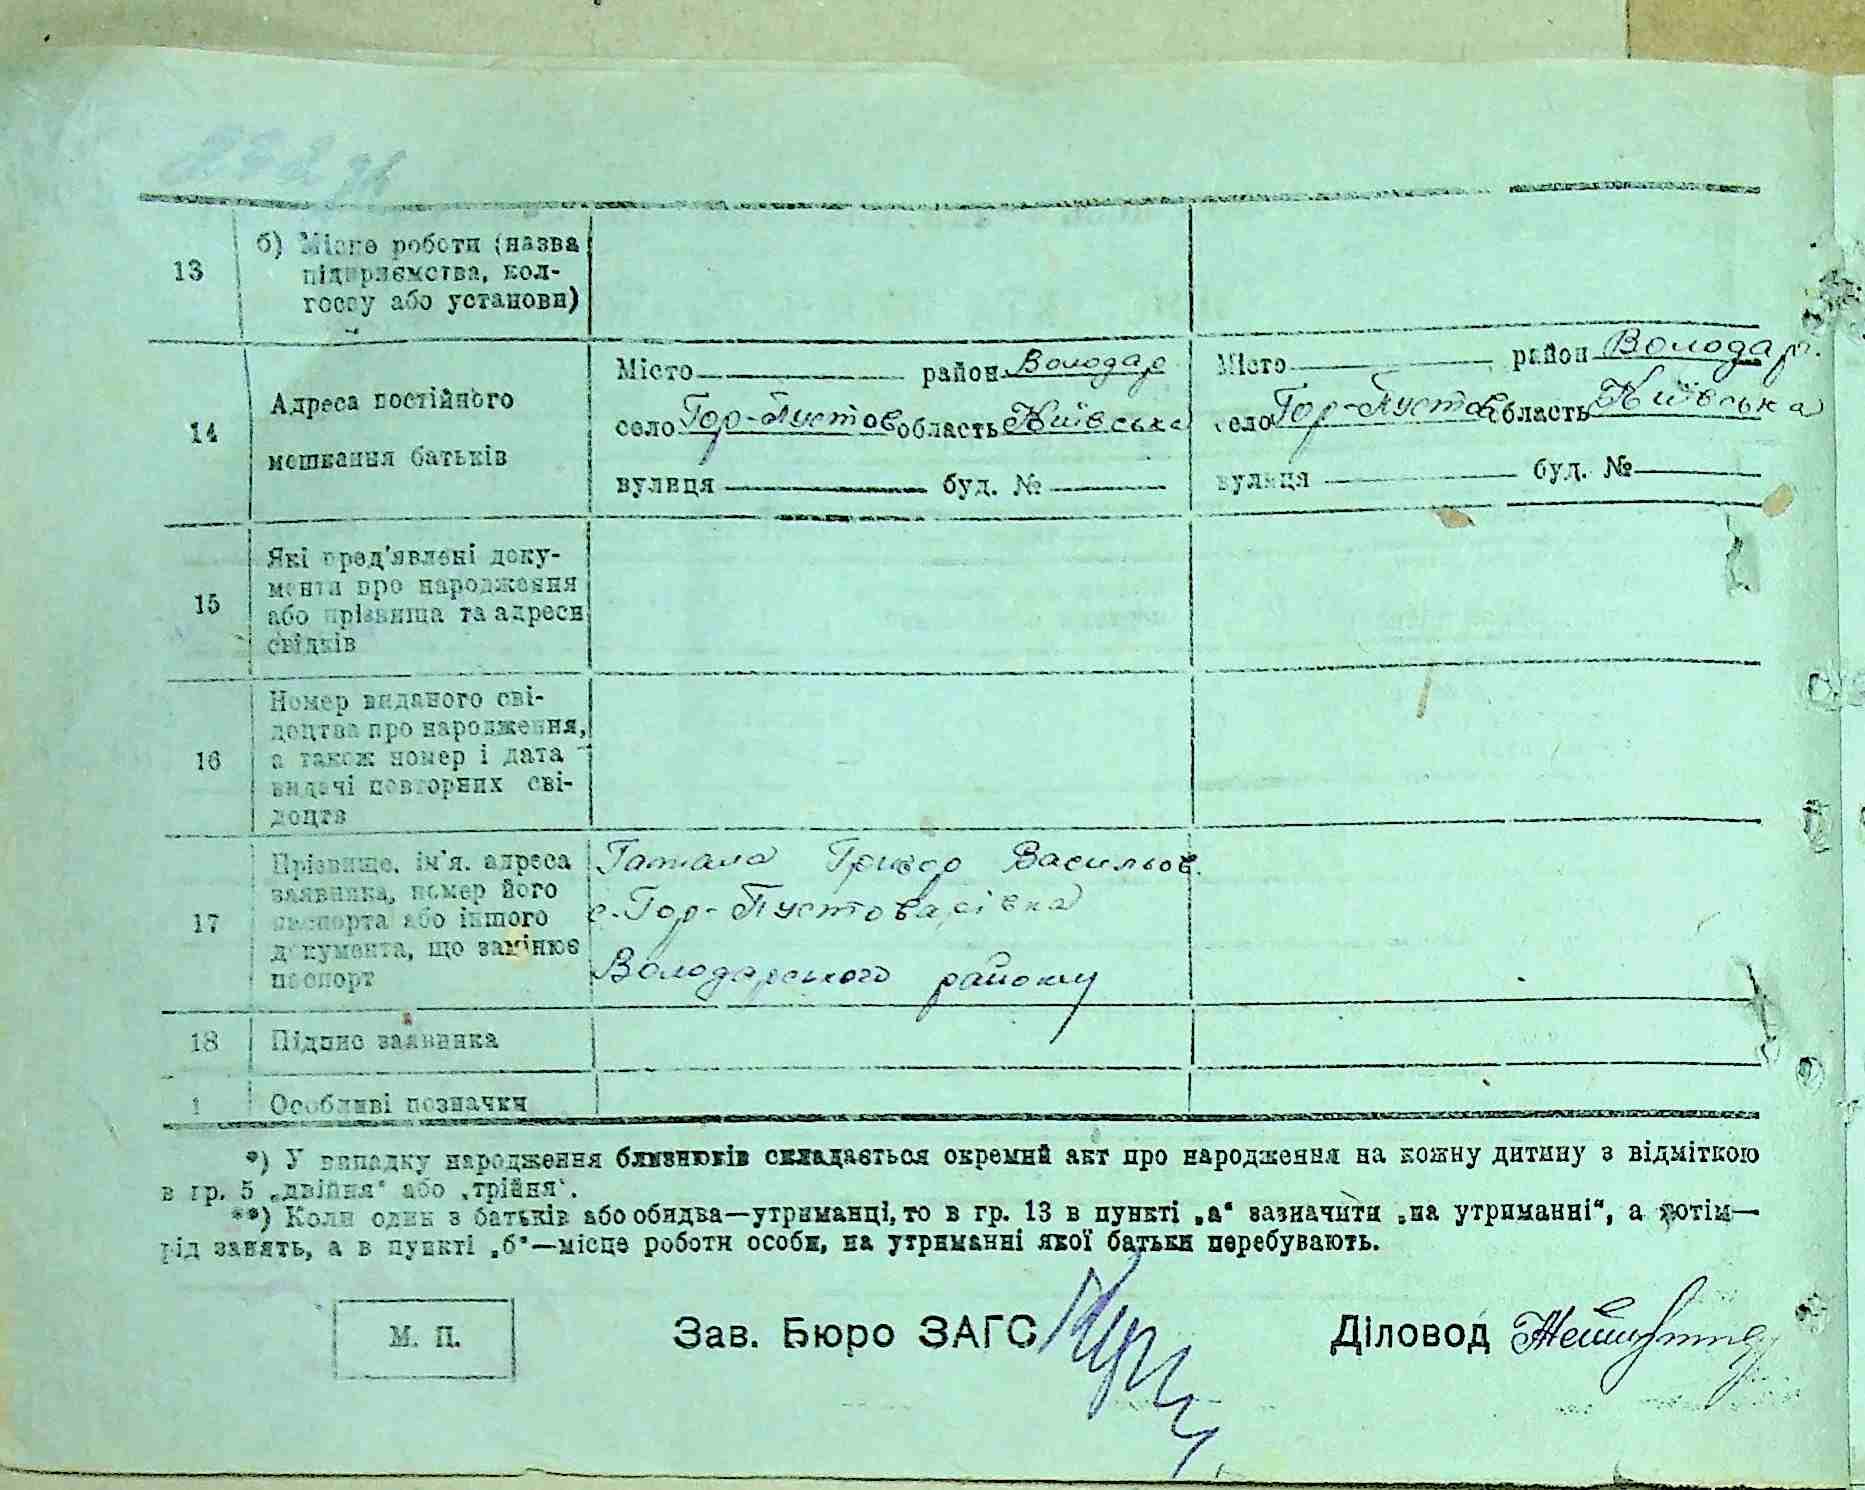 13
б) Місце роботи (назва
підприємства, кол-
госпу або установи)
14
Адреса постійного
мешкання батьків
Місто район Володар
село Гор-Пустов область Київська
вулиця буд. №
Місто район Володар.
село Гор-Пустов область Київська
вулиця буд. №
15
Які пред'явлені доку-
менти про народження
або прізвища та адреси
свідків
16
Номер виданого сві-
доцтва про народження,
а також номер і дата
видачі повторних сві-
доцтв
17
Прізвище, ім'я, адреса
заявника, номер його
паспорта або іншого
документа, що замінює
паспорт
Гатало Григор Васильов.
с. Гор-Пустоварівка
Володарського району
18
Підпис заявника
1
Особливі позначки
*) У випадку народження близнюків складається окремий акт про народження на кожну дитину з відміткою
в гр. 5 „двійня" або „трійня".
**) Коли один з батьків або обидва—утриманці, то в гр. 13 в пункті „а" зазначити „на утриманні", а потім—
рід занять, а в пункті „б"—місце роботи особи, на утриманні якої батьки перебувають.
М. П.
Зав. Бюро ЗАГС
Діловод